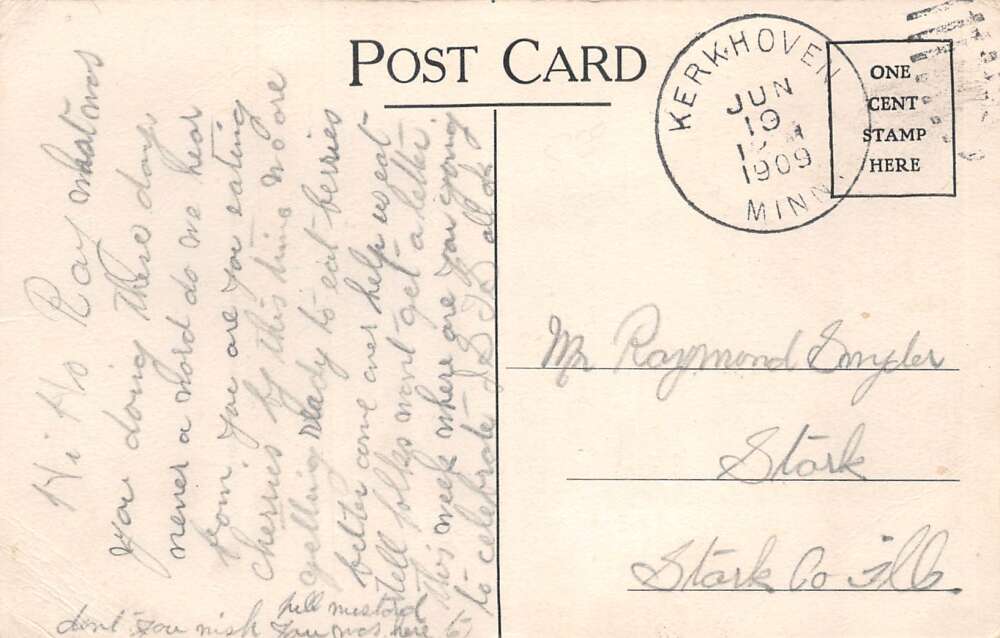 POST CARD
KERKHOVEN
JUN
19
1909
MINN.
ONE
CENT
STAMP
HERE
Hi Ho Ray what was
you doing these days
never a word do we hear
from you are you eating
cherries by this time we are
getting ready to eat berries
better come over help us eat
tell folks wont get a letter
this week where are you going
to celebrate
dont you wish you was here to
pull mustard
Mr Raymond Snyder
Stark
Stark Co Ills.